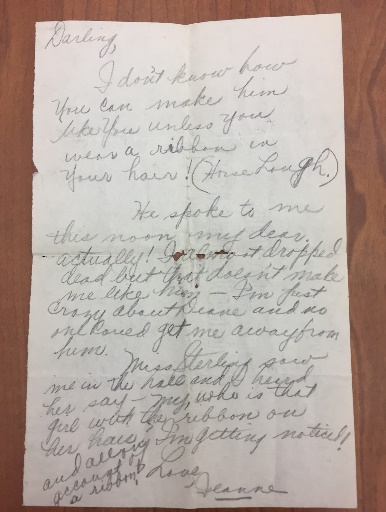 Darling,
I don't know how
you can make him
like you unless you
wear a ribbon in
your hair! (Horse Laugh.)
He spoke to me
this noon my dear.
actually! I almost dropped
dead but that doesn't make
me like him — I'm just
crazy about Duane and no
one could get me away from
him.
Miss Sterling saw
me in the hall and I heard
her say — my, who is that
girl with the ribbon on
her hair. I'm getting noticed!
and all on
account of
a ribbon!
Love,
Jeanne